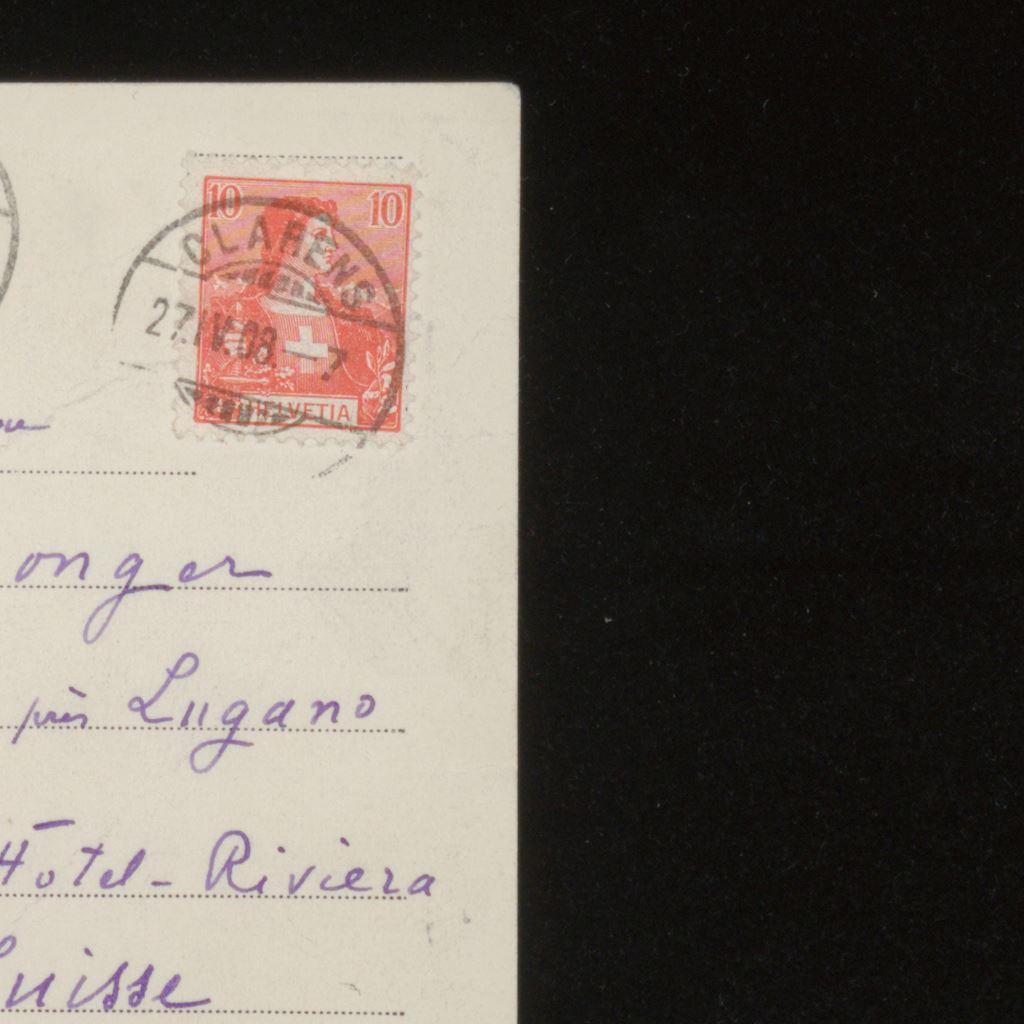 10 10
CLARENS
27.IV.08.–7
HELVETIA
onger
près Lugano
Hôtel-Riviera
Suisse